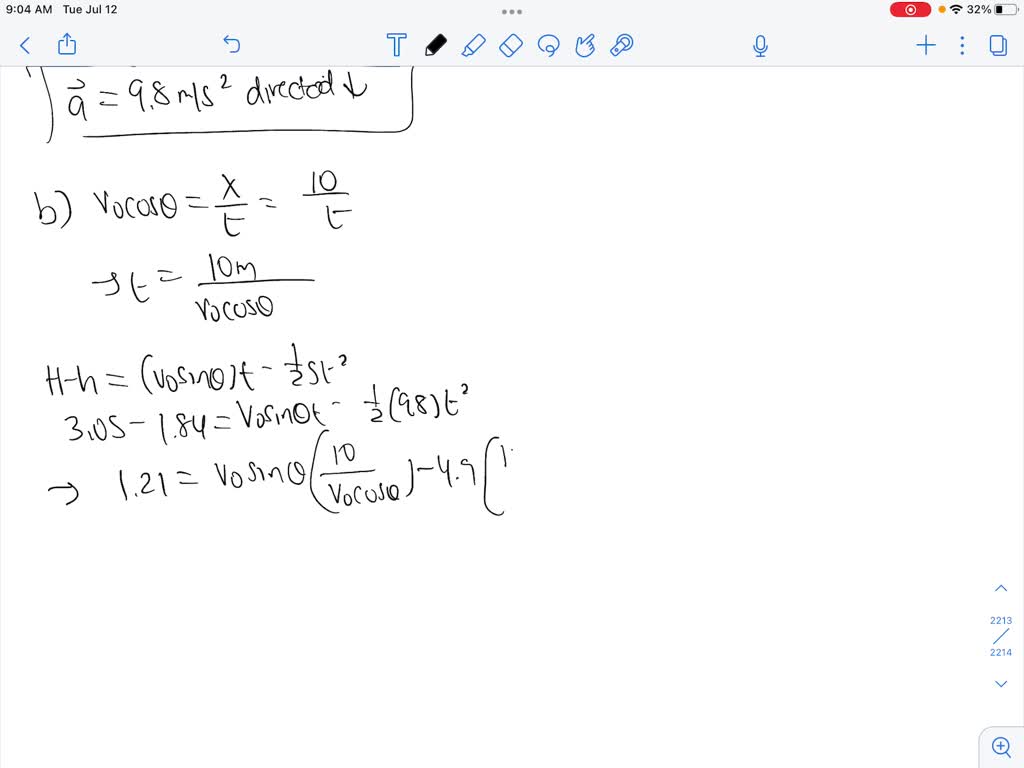 9:04 AM Tue Jul 12
32%
a⃗ = 9.8 m/s² directed ↓
b) v₀cosθ = x/t = 10/t
→ t = 10m/v₀cosθ
H-h = (v₀sinθ)t - ½gt²
3.05 - 1.84 = v₀sinθt - ½(9.8)t²
→ 1.21 = v₀sinθ(10/v₀cosθ) - 4.9(1
2213
2214